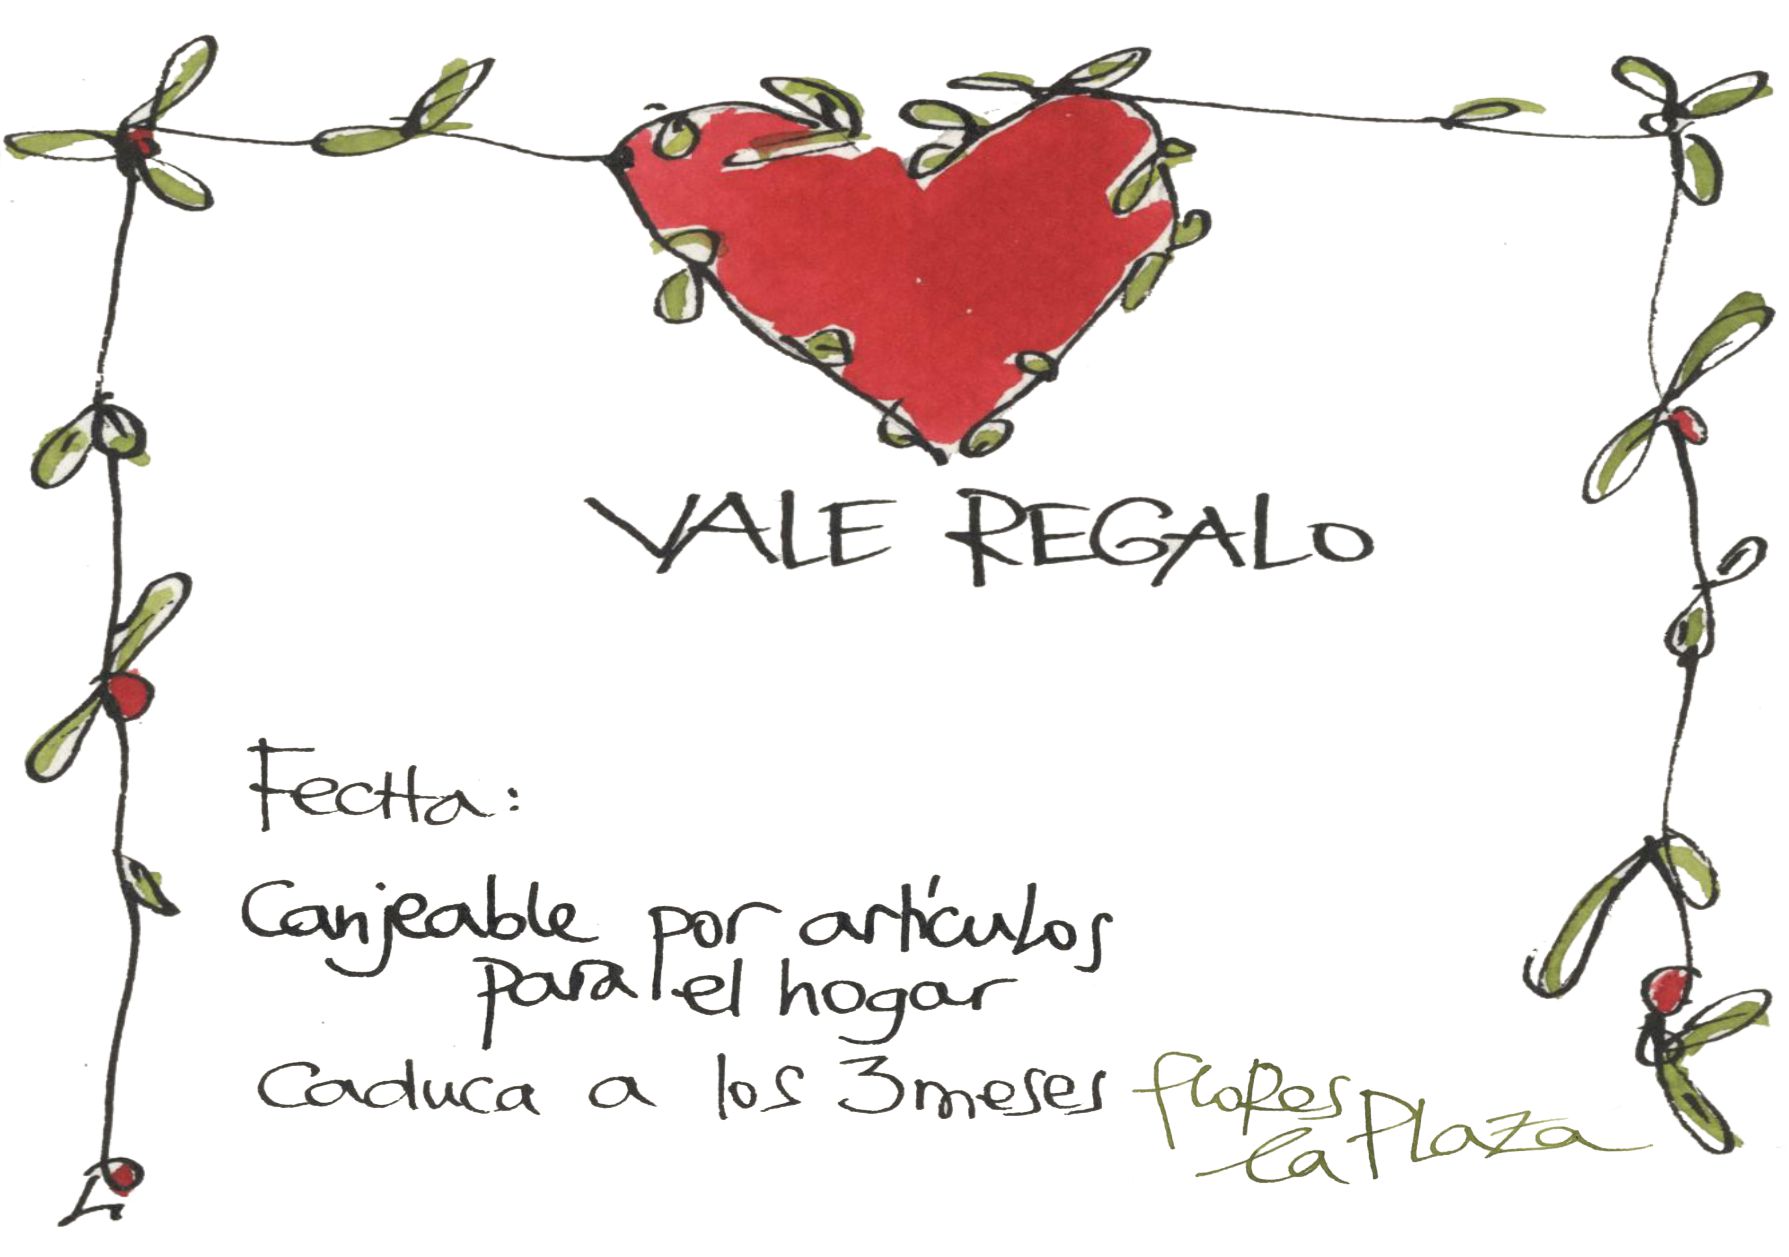 VALE REGALO
FecHa:
Canjeable por artículos
para el hogar
Caduca a los 3 meses
flores
la Plaza